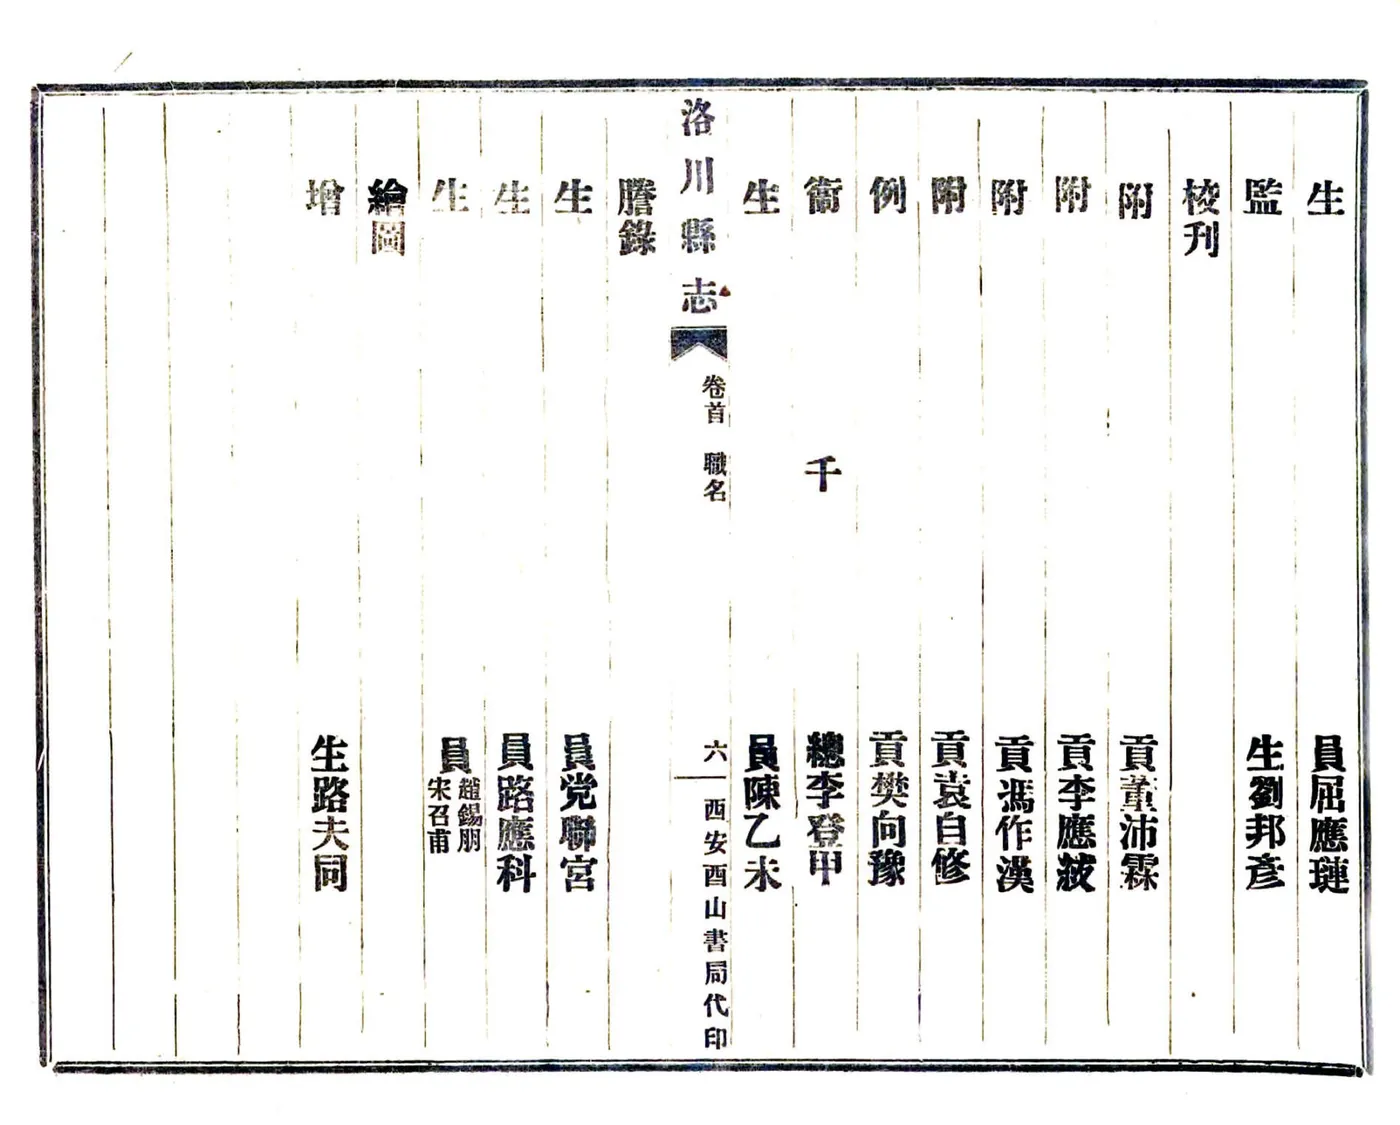 生員屈應璉
監生劉邦彥
校刊
附貢董沛霖
附貢李應
附貢馮作漢
附貢袁自修
例貢樊向豫
衞千總李登甲
生員陳乙未
洛川縣志
卷首 職名
六
西安酉山書局代印
謄錄
生員党聯宮
生員路應科
生員趙錫朋
宋召甫
繪圖
增生路夫同